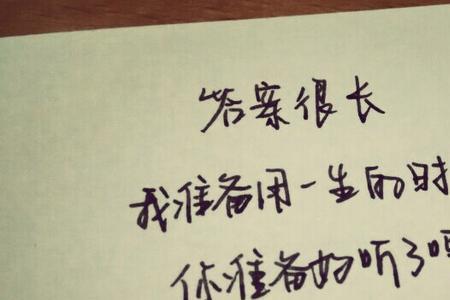 答案很长
我准备用一生的时
你准备好听了吗